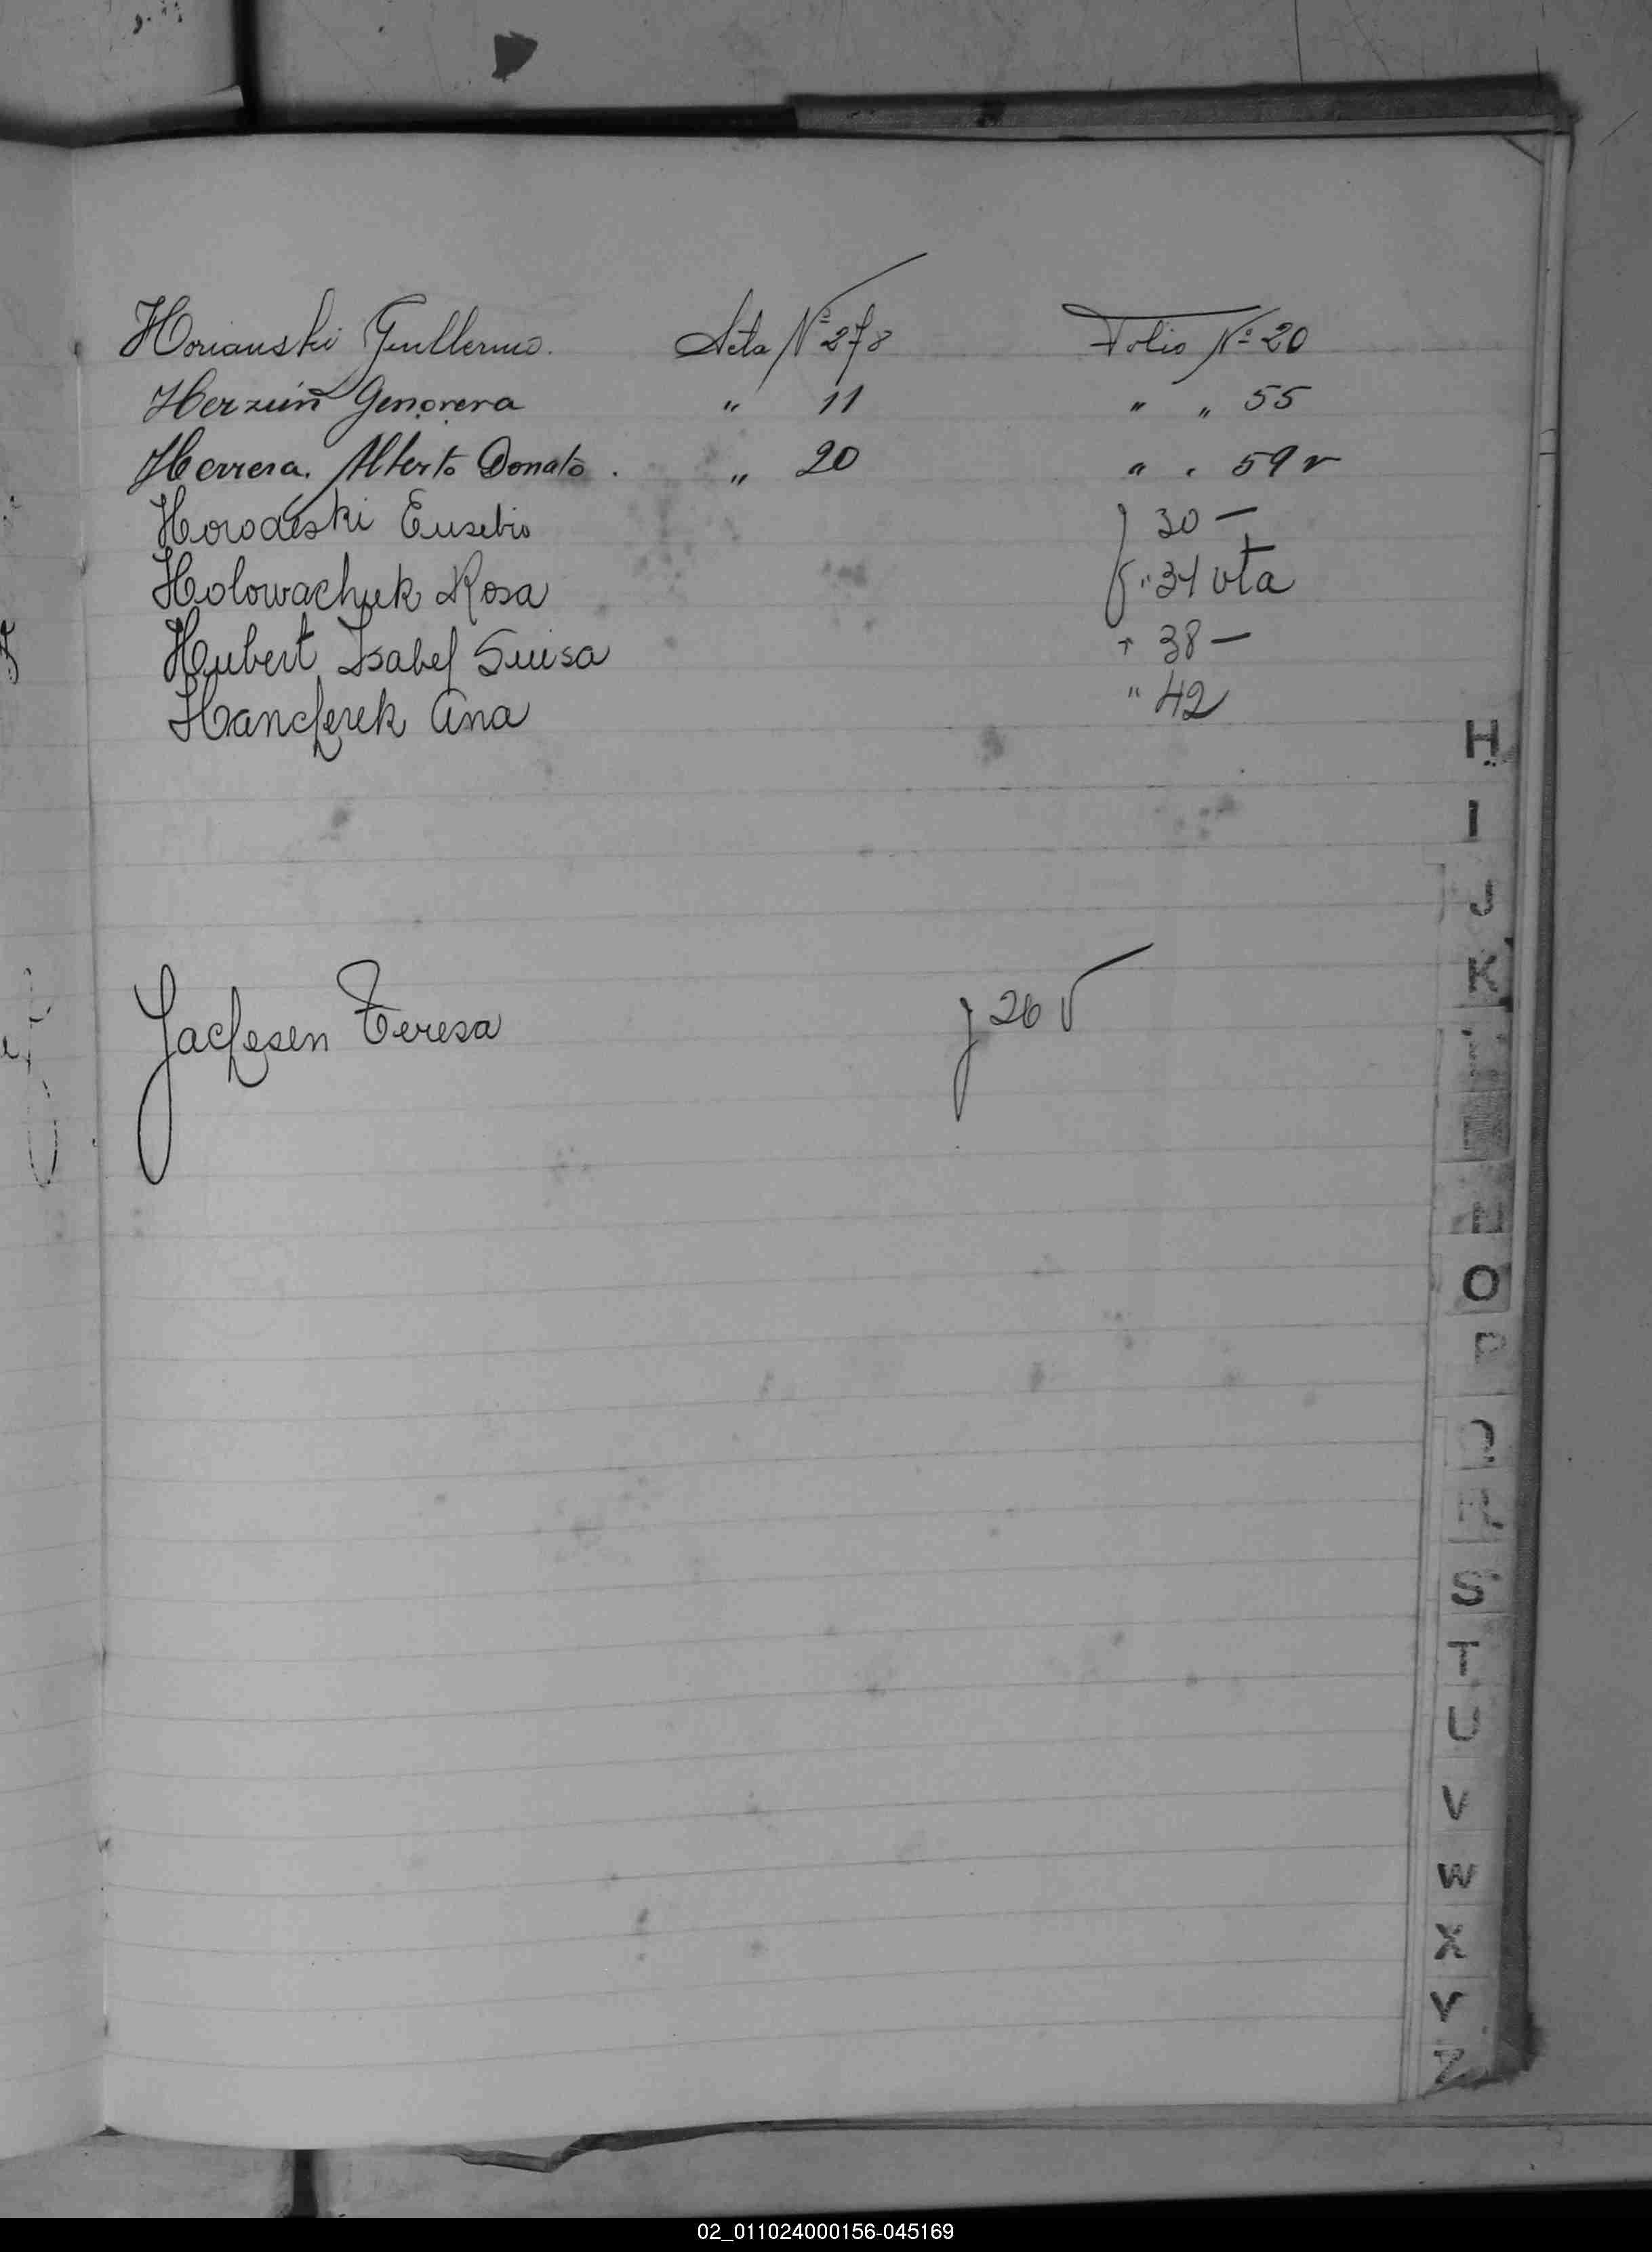 Horianski Guillermo. Acta Nº 278 Folio Nº 20
Herzuiñ Genovera " 11 " " 55
Herrera. Alberto Donato. " 20 " " 59 v
Horodeski Eusebio f 30 —
Holowachuk Rosa f " 34 vta
Hubert Isabel Suisa " 38 —
Hancferek Ana " 42
Jacfesen Teresa f 26 v
H
I
J
K
N
O
P
Q
R
S
T
U
V
W
X
Y
Z
02_011024000156-045169